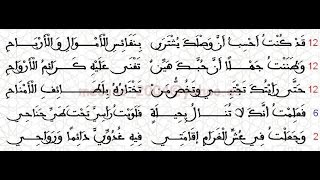 12 قَدْ كُنْتُ أَحْسِبُ أَنَّ وَصْلَكَ يُشْتَرَى بِنَفَائِسِ الْأَمْوَالِ وَالْأَرْبَاحِ
12 وَظَنَنْتُ جَهْلاً أَنَّ حُبَّكَ هَيِّنٌ تُفْنَى عَلَيْهِ كَرَائِمُ الْأَرْوَاحِ
12 حَتَّى رَأَيْتُكَ تَجْتَبِي وَتَخُصُّ مَنْ تَخْتَارُهُ بِلَطَائِفِ الْأَمْنَاحِ
6 فَعَلِمْتُ أَنَّكَ لَا تُنَالُ بِحِيلَةٍ فَلَوَيْتُ رَأْسِي تَحْتَ طَيِّ جَنَاحِي
2 وَجَعَلْتُ فِي عُشِّ الْغَرَامِ إِقَامَتِي فِيهِ غُدُوِّي دَائِمًا وَرَوَاحِي